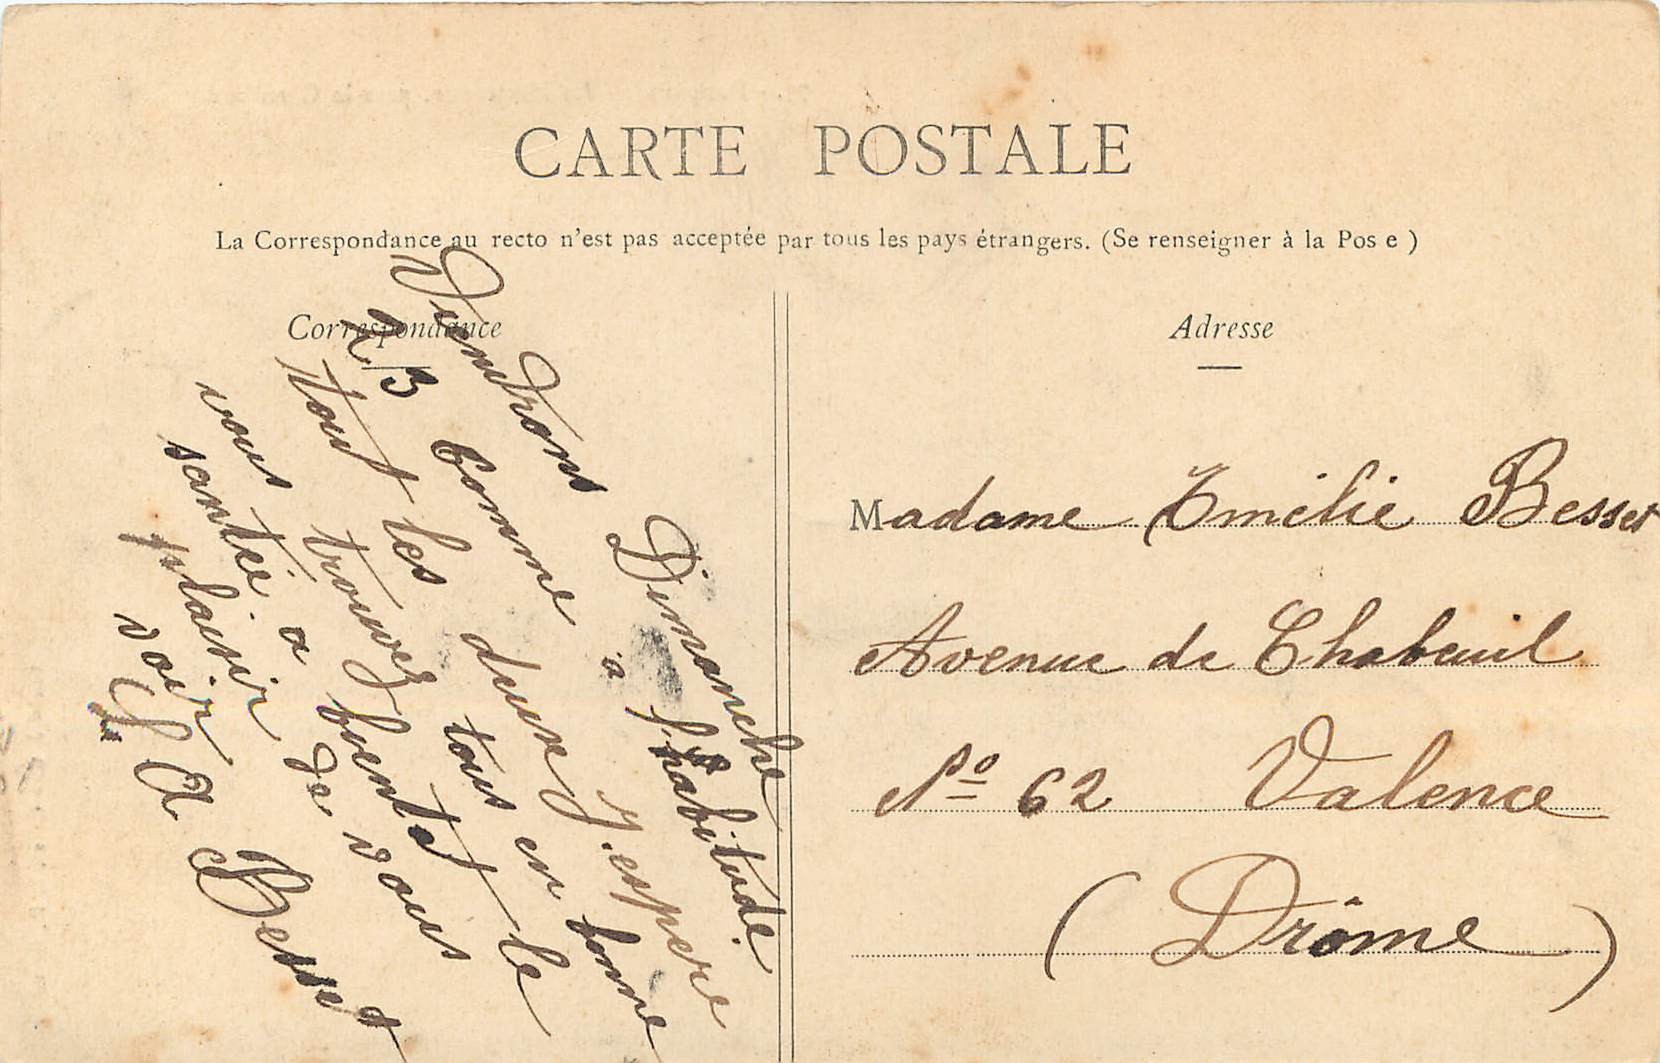 CARTE POSTALE
La Correspondance au recto n'est pas acceptée par tous les pays étrangers. (Se renseigner à la Pos e )
Correspondance
Viendrons Dimanche
2/3 comme à l'habitude
tout les deux J'espere
vous trouvez tous en bonne
santée a bientot le
plaisir de vous
voir
A Besset
Adresse
Madame Emelie Besset
Avenue de Chabeuil
No 62 Valence
(Drôme)